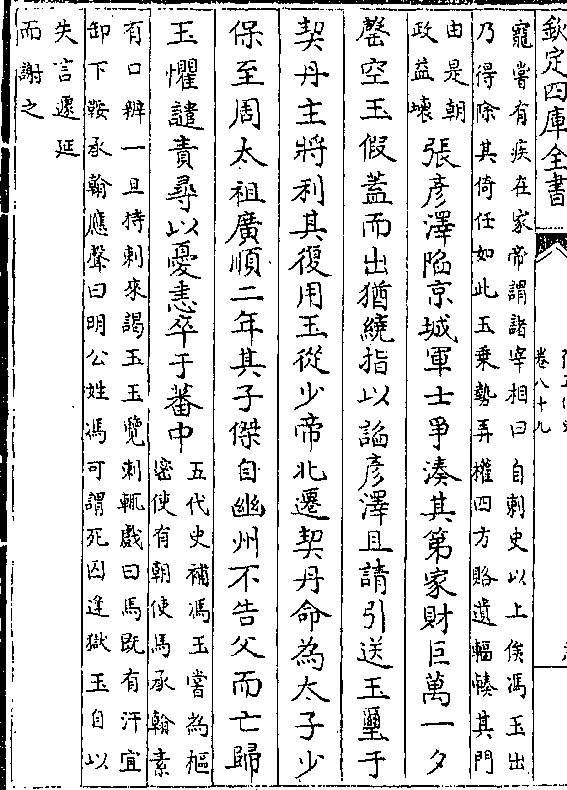 欽定四庫全書
卷八十九
寵嘗有疾在家帝謂諸宰相曰自刺史以上俟馮玉出
乃得除其倚任如此玉乗勢弄權四方賂遺輻輳其門
由是朝
政益壞
張彥澤陷京城軍士爭湊其第家財巨萬一夕
罄空玉假蓋而出猶繞指以諂彥澤且請引送玉璽于
契丹主將利其復用玉從少帝北遷契丹命為太子少
保至周太祖廣順二年其子傑自幽州不告父而亡歸
玉懼譴責尋以憂恚卒于蕃中
五代史補馮玉嘗為樞
密使有朝使馬承翰素
有口辨一旦持刺來謁玉玉覽刺輒戲曰馬既有汗宜
卸下鞍承翰應聲曰明公姓馮可謂死囚逢獄玉自以
失言遽延
而謝之